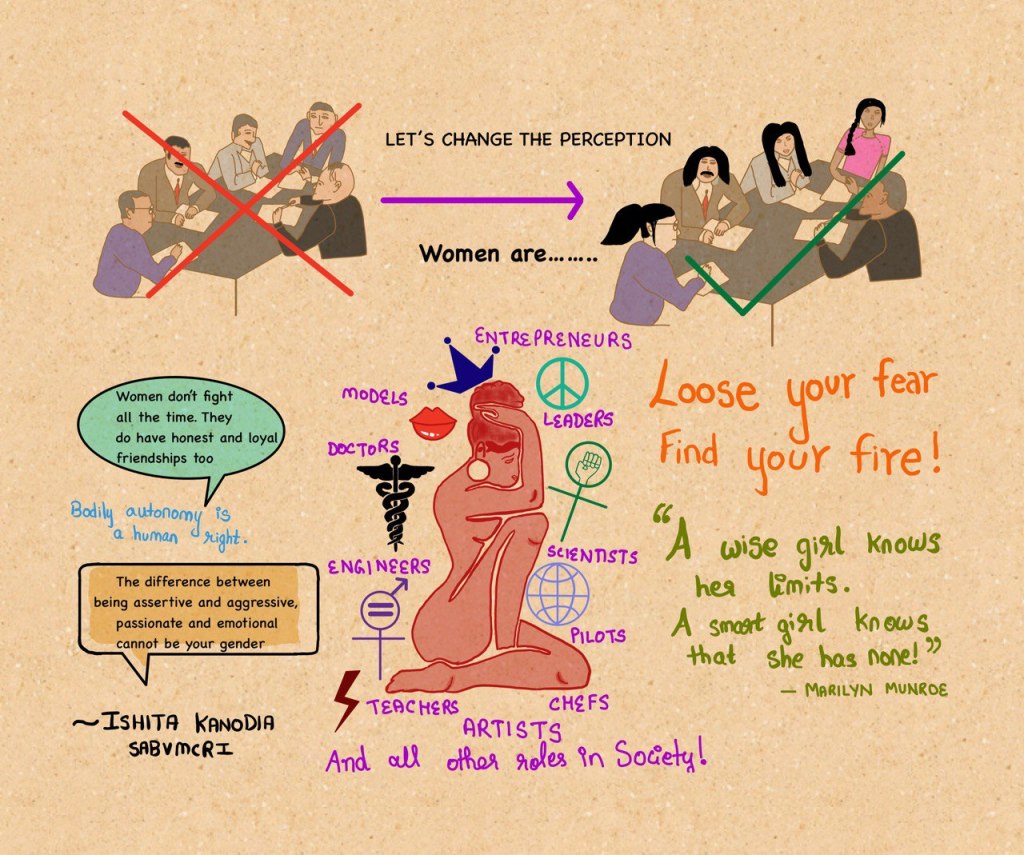 LET'S CHANGE THE PERCEPTION
Women are........
ENTREPRENEURS
MODELS
LEADERS
DOCTORS
SCIENTISTS
ENGINEERS
PILOTS
TEACHERS
CHEFS
ARTISTS
And all other roles in Society!
Women don't fight
all the time. They
do have honest and loyal
friendships too
Bodily autonomy is
a human right.
The difference between
being assertive and aggressive,
passionate and emotional
cannot be your gender
~ISHITA KANODIA
SABVMCRI
Loose your fear
Find your fire!
"A wise girl knows
her limits.
A smart girl knows
that she has none!"
— MARILYN MUNROE